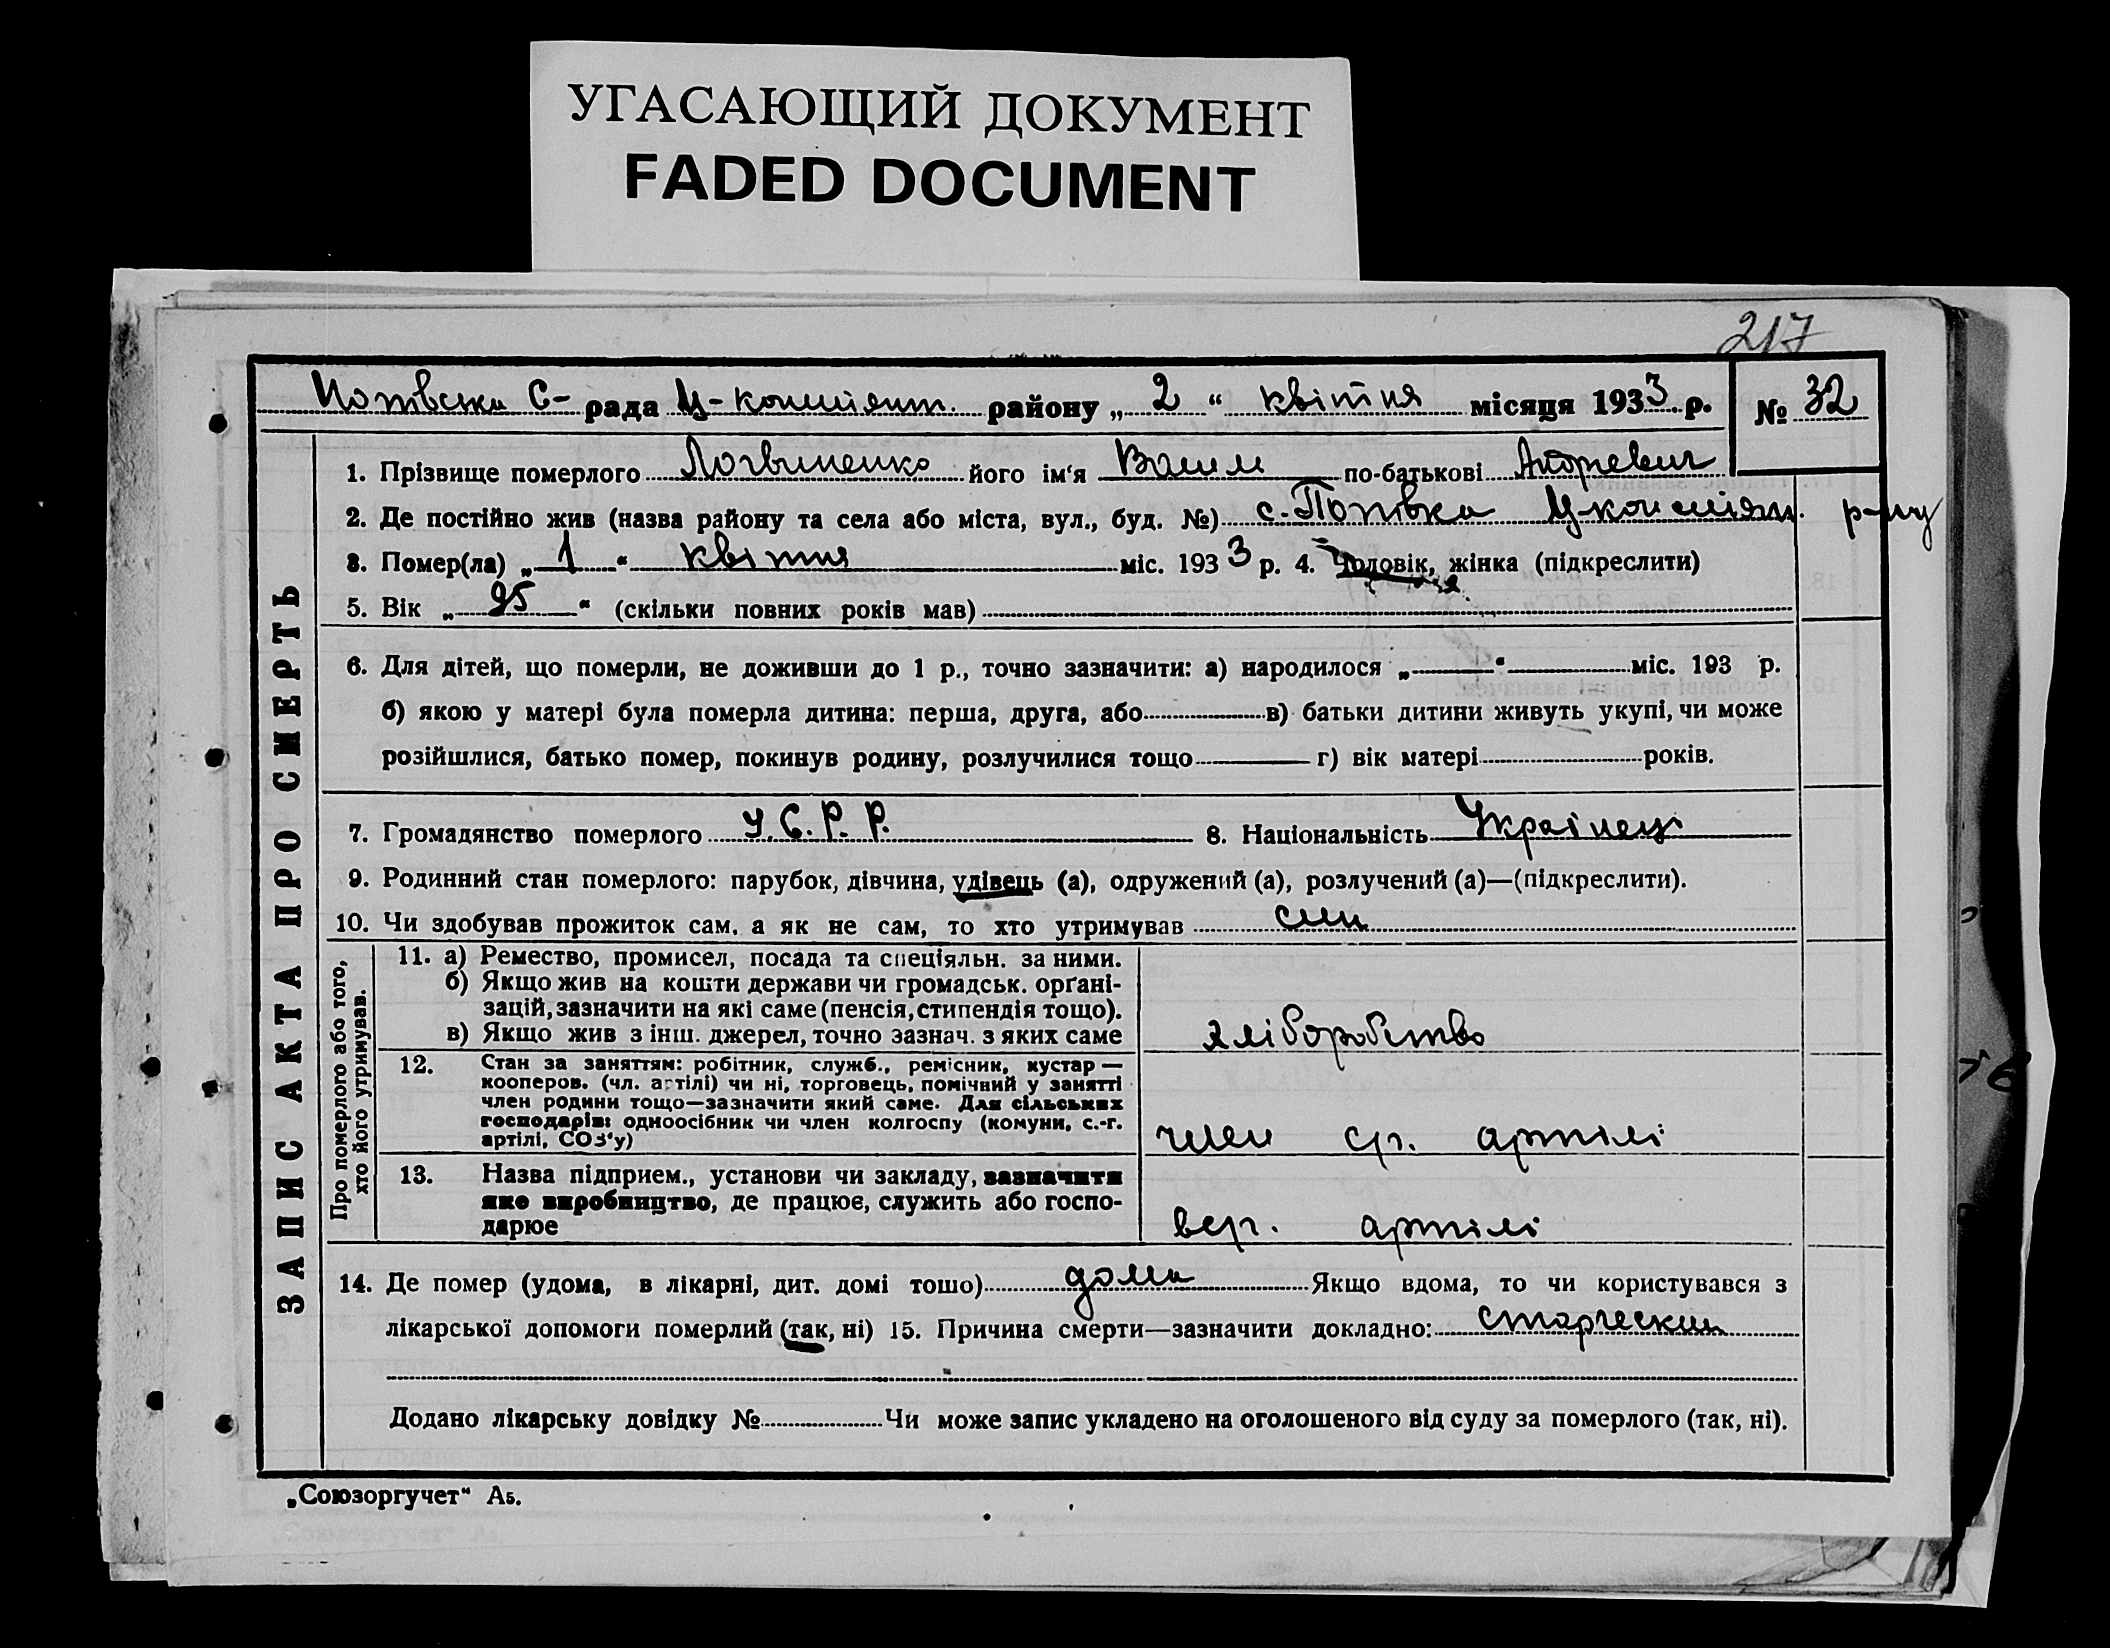 УГАСАЮЩИЙ ДОКУМЕНТ
FADED DOCUMENT
217
Попівська С- рада Ц-констянт. району „ 2 “ квітня місяця 1933 р. № 32
1. Прізвище померлого Логвиненко його ім‘я Василь по-батькові Андреевич
2. Де постійно жив (назва району та села або міста, вул., буд. №) с. Попівка Ц-констянт. р-ну
3. Помер(ла) „ 1 “ квітня міс. 1933 р. 4. Чоловік, жінка (підкреслити)
5. Вік „ 95 “ (скільки повних років мав)
6. Для дітей, що померли, не доживши до 1 р., точно зазначити: а) народилося „ “ міс. 193 р.
б) якою у матері була померла дитина: перша, друга, або в) батьки дитини живуть укупі, чи може
розійшлися, батько помер, покинув родину, розлучилися тощо г) вік матері років.
7. Громадянство померлого У.С.Р.Р. 8. Національність Українець
9. Родинний стан померлого: парубок, дівчина, удівець (а), одружений (а), розлучений (а)—(підкреслити).
10. Чи здобував прожиток сам, а як не сам, то хто утримував
ЗАПИС АКТА ПРО СМЕРТЬ
Про померлого або того,
хто його утримував.
11. а) Ремество, промисел, посада та спеціяльн. за ними.
б) Якщо жив на кошти держави чи громадськ. орґані-
зацій, зазначити на які саме (пенсія, стипендія тощо).
в) Якщо жив з інш. джерел, точно зазнач. з яких саме
хліборобство
12. Стан за заняттям: робітник, служб., ремісник, кустар —
кооперов. (чл. артілі) чи ні, торговець, помічний у занятті
член родини тощо—зазначити який саме. Для сільських
господарів: одноосібник чи член колгоспу (комуни, с.-г.
артілі, СОЗ‘у)
член ср. артілі
13. Назва підприєм., установи чи закладу, зазначити
яке виробництво, де працює, служить або госпо-
дарює
артілі
14. Де помер (удома, в лікарні, дит. домі тошо) дома Якщо вдома, то чи користувався з
лікарської допомоги померлий (так, ні) 15. Причина смерти—зазначити докладно: старческий
Додано лікарську довідку № Чи може запис укладено на оголошеного від суду за померлого (так, ні).
„Союзоргучет“ А5.